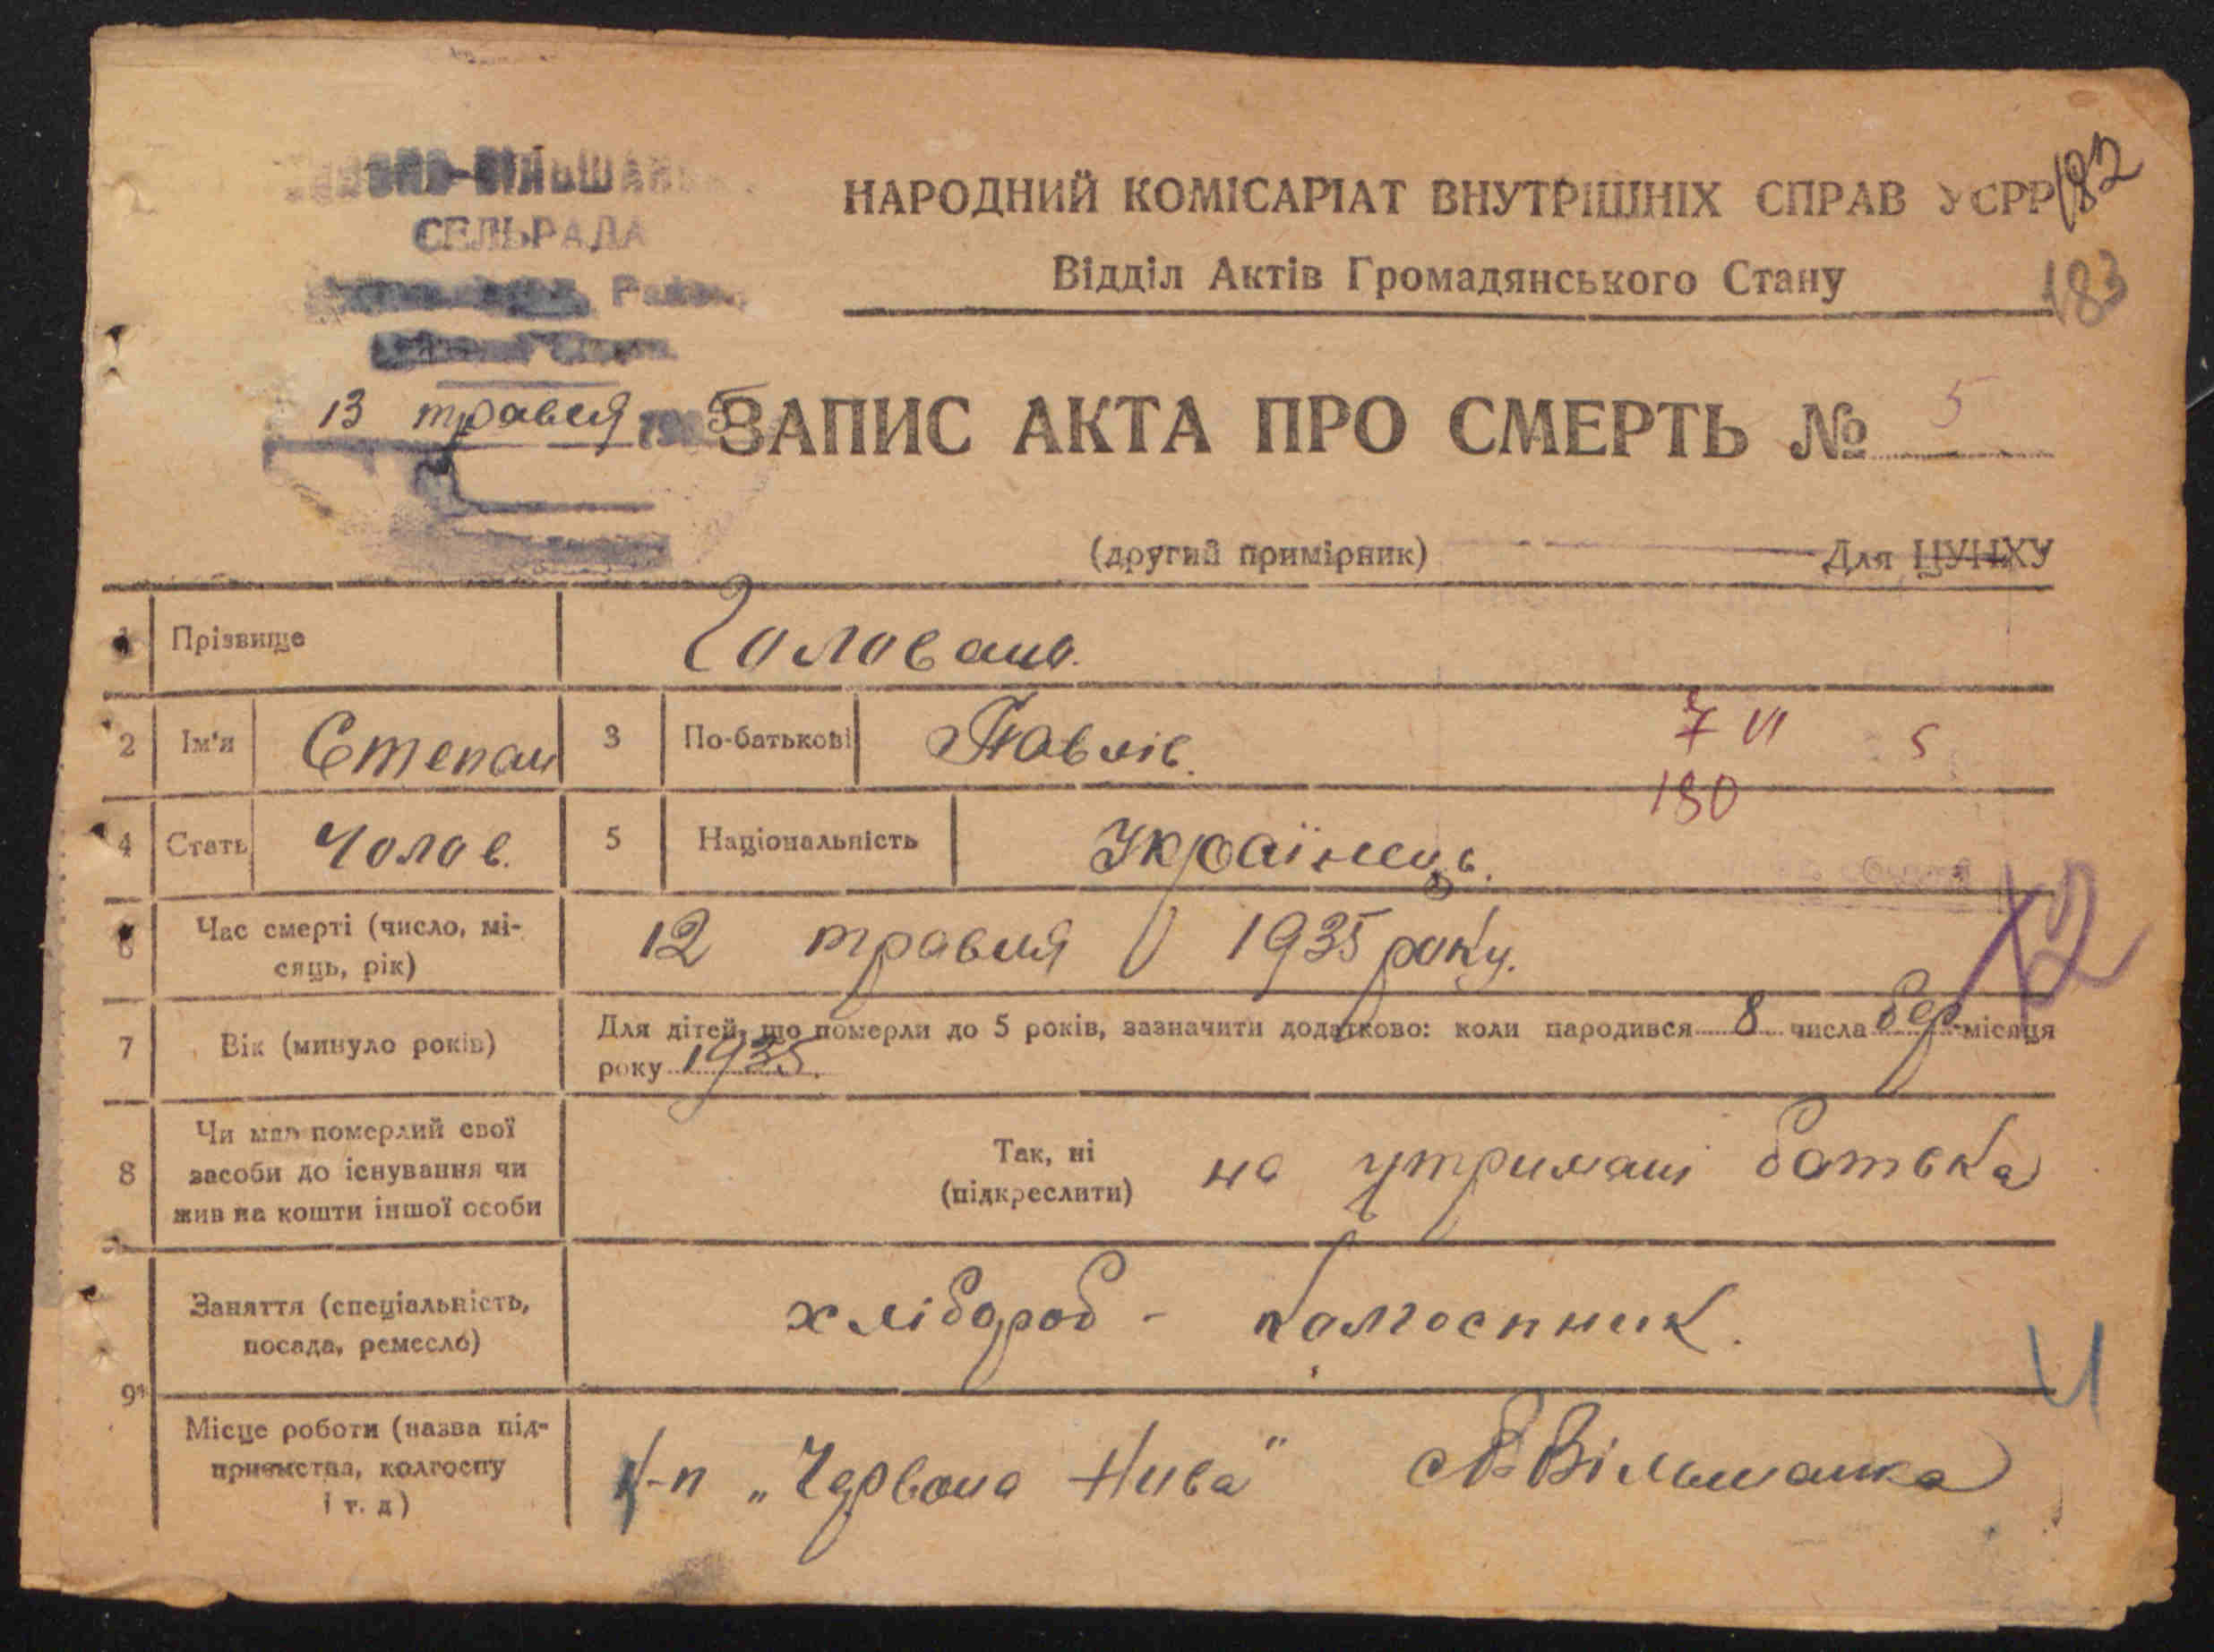 СЕЛЬРАДА
НАРОДНИЙ КОМІСАРІАТ ВНУТРІШНІХ СПРАВ УСРР
182
Відділ Актів Громадянського Стану
183
13 травня 1935
ЗАПИС АКТА ПРО СМЕРТЬ № 5
(другий примірник) Для ЦУНХУ
1 Прізвище Головань.
2 Ім'я Степан 3 По-батькові Павлів. 7 VI 5
180
4 Стать Чолов. 5 Національність Українець.
6 Час смерті (число, мі-
сяць, рік) 12 травня 1935 року.
7 Вік (минуло років) Для дітей, що померли до 5 років, зазначити додатково: коли народився 8 числа бер місяця
року 1935.
8 Чи мав померлий свої
засоби до існування чи
жив на кошти іншої особи
Так, ні
(підкреслити) на утримані батька
Заняття (спеціальність,
посада, ремесло) хлібороб - колгоспник.
9
Місце роботи (назва під-
приємства, колгоспу
і т. д) к-п „Червона Нива" Вільшанка